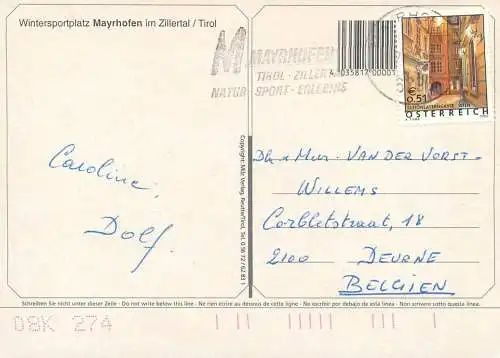 Wintersportplatz Mayrhofen im Zillertal / Tirol
MAYRHOFEN
TIROL · ZILLERTAL
NATUR · SPORT · ERLEBNIS
4 035817 00001
€ 0,51
SCHÖNLATERNGASSE WIEN
ÖSTERREICH
Caroline,
Dolf.
Copyright: Milz Verlag, Reutte/Tirol, Tel. 0 56 72 / 62 83 1
Dh. x Mevr. VAN DER VORST-
WILLEMS
Corbletstraat, 18
2100 DEURNE
BELGIEN
Schreiben Sie nicht unter dieser Zeile - Do not write below this line - Ne rien écrire au dessous de cette ligne - No escribir por debajo de está linea - Non scrivere sotto questa linea.
08K 274